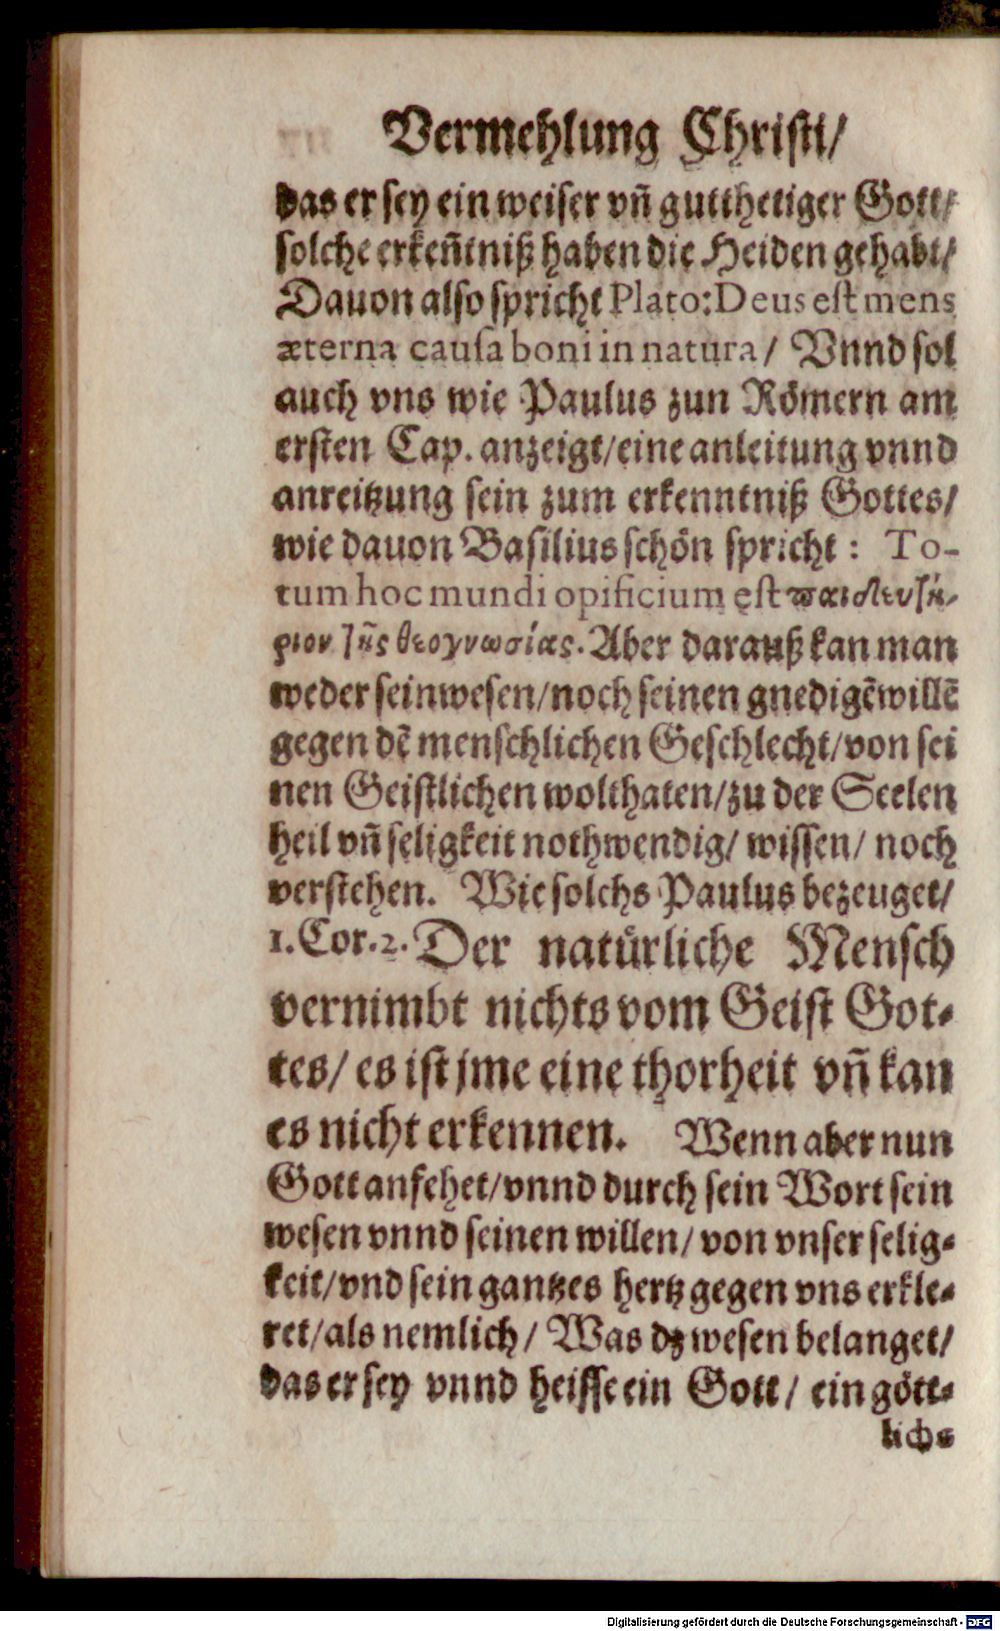 Vermehlung Christi/
das er sey ein weiser vñ gutthetiger Gott/
solche erkeñtniß haben die Heiden gehabt/
Dauon also spricht Plato: Deus est mens
æterna causa boni in natura/ Vnnd sol
auch vns wie Paulus zun Römern am
ersten Cap. anzeigt/eine anleitung vnnd
anreitzung sein zum erkenntniß Gottes/
wie dauon Basilius schön spricht: To-
tum hoc mundi opificium est παιδευτή-
ριον τῆς θεογνωσίας. Aber darauß kan man
weder sein wesen/noch seinen gnedigẽ willẽ
gegen dẽ menschlichen Geschlecht/von sei
nen Geistlichen wolthaten/zu der Seelen
heil vñ seligkeit nothwendig/ wissen/ noch
verstehen. Wie solchs Paulus bezeuget/
1. Cor. 2. Der natürliche Mensch
vernimbt nichts vom Geist Got-
tes/ es ist jme eine thorheit vñ kan
es nicht erkennen. Wenn aber nun
Gott anfehet/vnnd durch sein Wort sein
wesen vnnd seinen willen/ von vnser selig-
keit/vnd sein gantzes hertz gegen vns erkle-
ret/als nemlich/ Was dz wesen belanget/
das er sey vnnd heisse ein Gott/ ein gött-
lichs
Digitalisierung gefördert durch die Deutsche Forschungsgemeinschaft - DFG